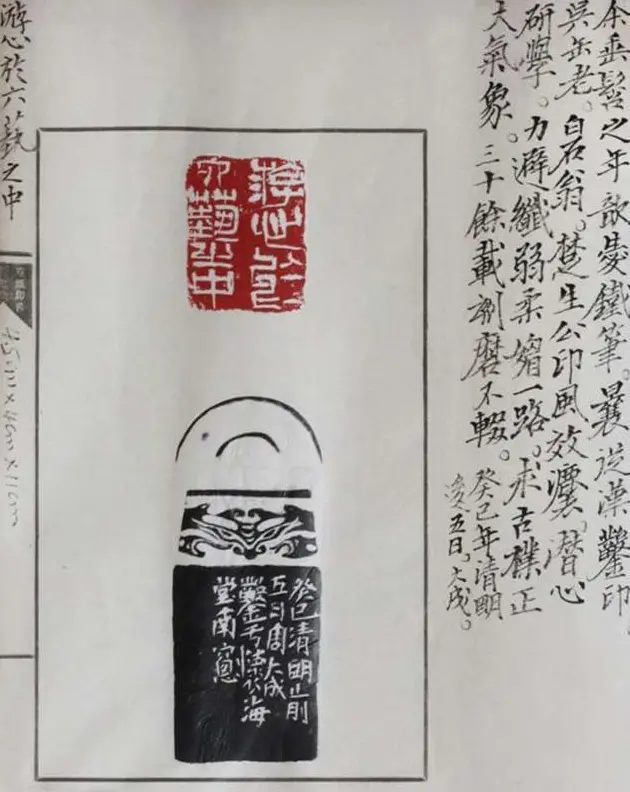 余垂髫之年歆愛鐵筆。曩從漢鑿印
吳缶老。白石翁。楚生公印風效灋。潛心
研學。力避纖弱柔媚一路。求古樸正
大氣象。三十餘載剒磨不輟。
癸巳年清明
後五日。大成。
游心於
六藝之中
癸巳清明前
五日周大成
鑿於海
堂南窗
游心於六藝之中